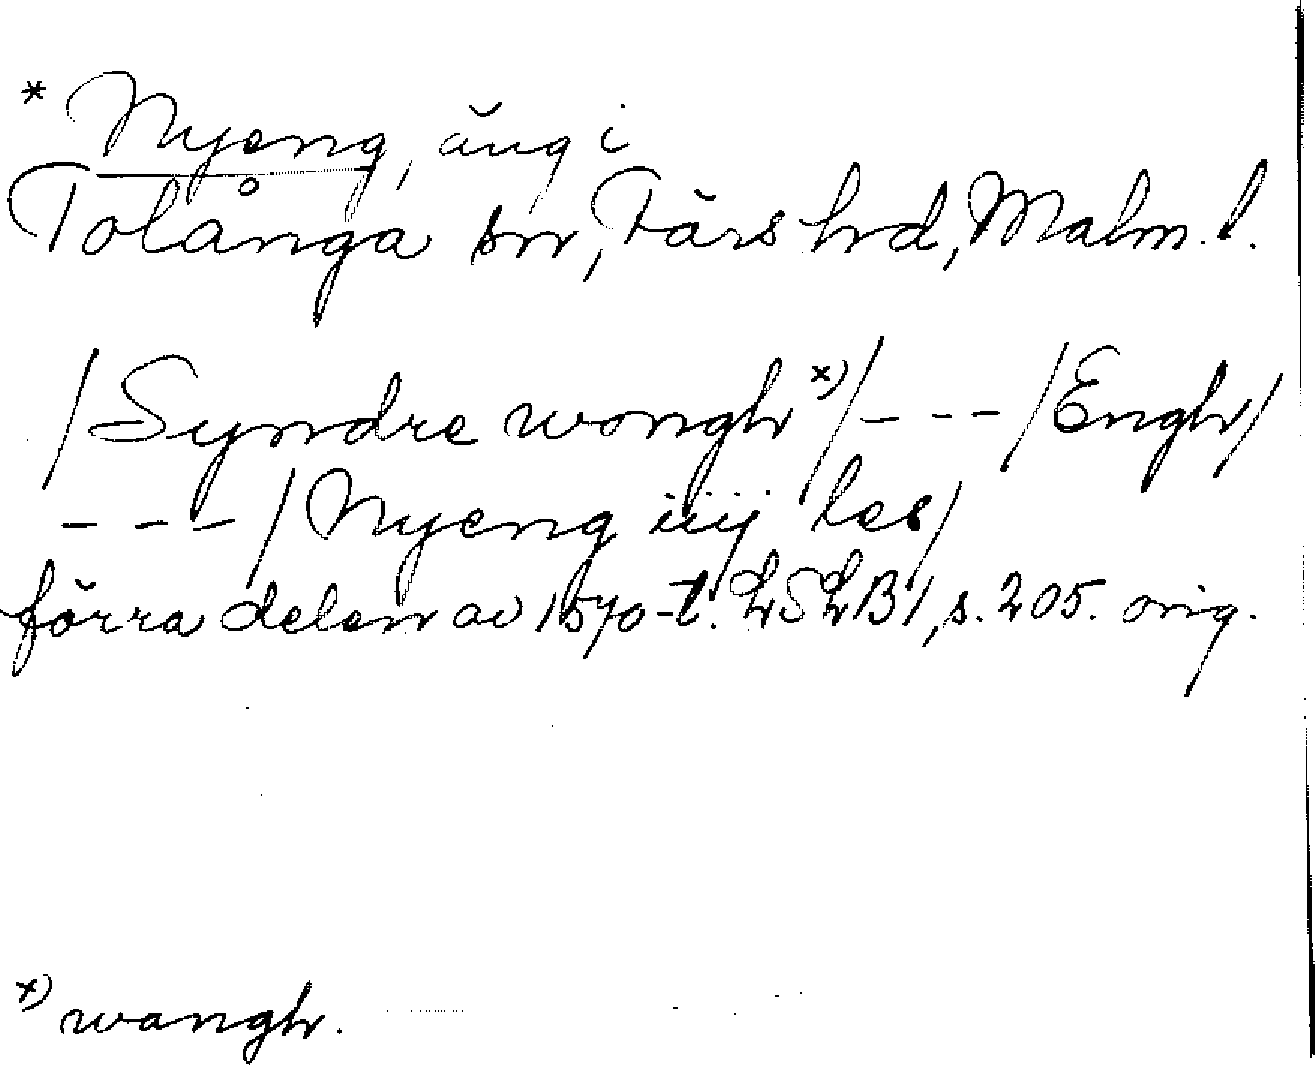 * Nyeng, äng i
Tolånga sn, Färs hd, Malm. l.
/Syndre wongh x)/ - - - /Engh/
- - - /Nyeng iiij les/
förra delen av 1570-t. LSLB1, s. 205. orig.
x) wangh.